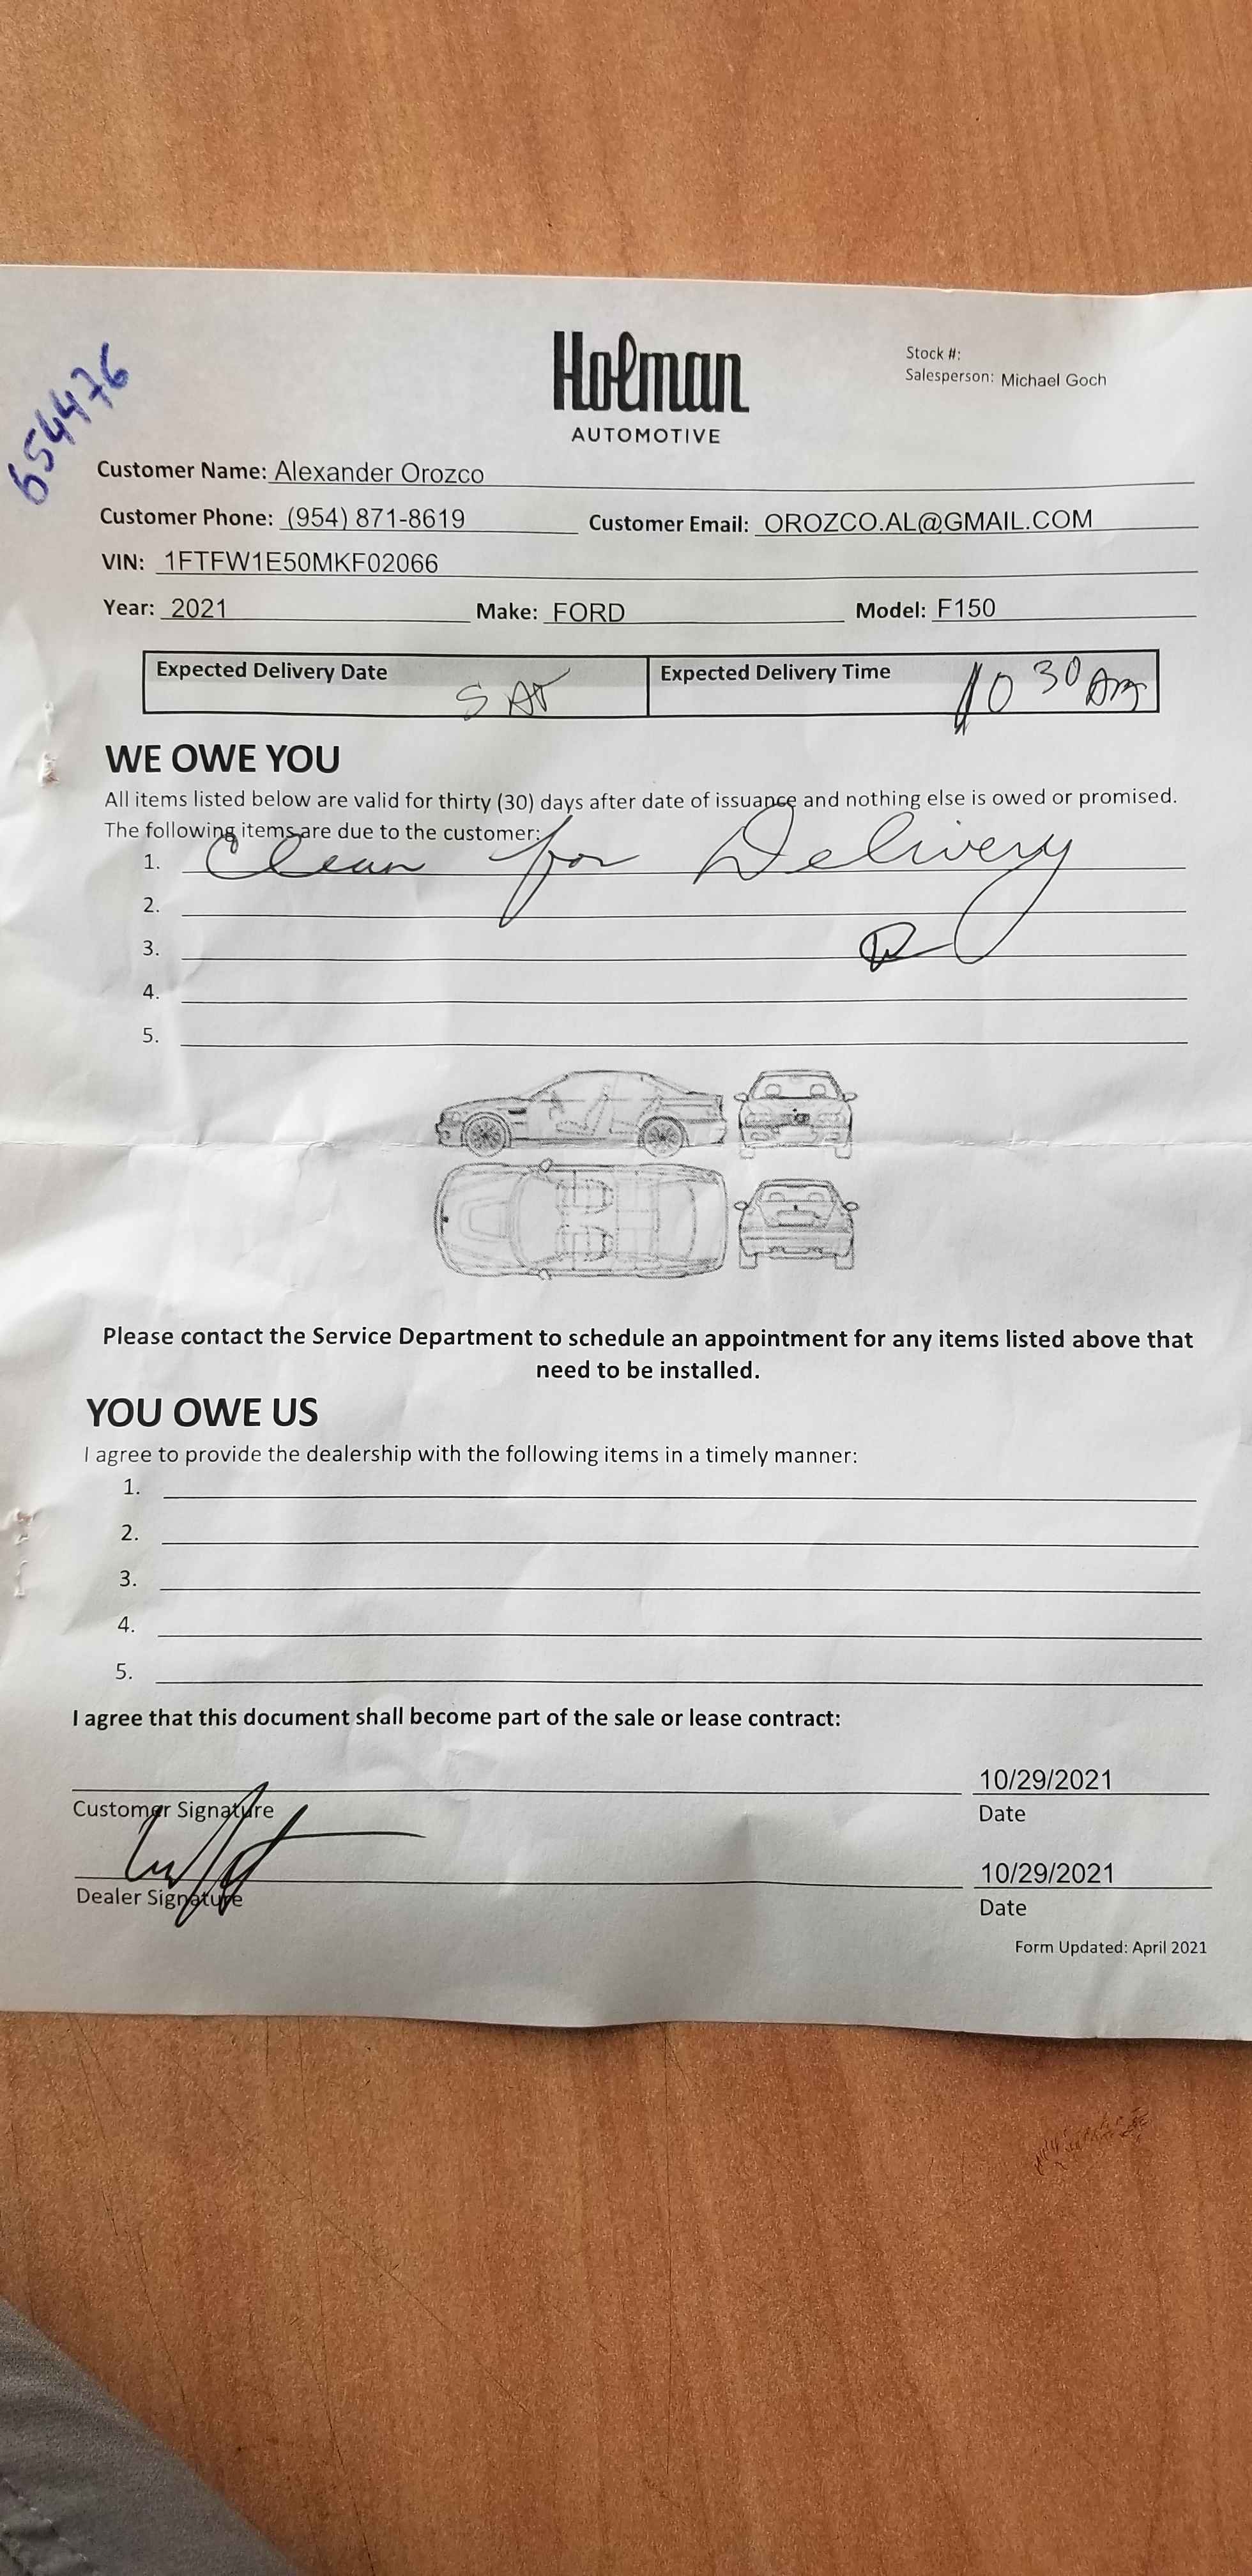 654476
Holman
AUTOMOTIVE
Stock #:
Salesperson: Michael Goch
Customer Name: Alexander Orozco
Customer Phone: (954) 871-8619 Customer Email: OROZCO.AL@GMAIL.COM
VIN: 1FTFW1E50MKF02066
Year: 2021 Make: FORD Model: F150
Expected Delivery Date SAT Expected Delivery Time 10 30 Am
WE OWE YOU
All items listed below are valid for thirty (30) days after date of issuance and nothing else is owed or promised.
The following items are due to the customer:
1. Clean for Delivery
2.
3.
4.
5.
Please contact the Service Department to schedule an appointment for any items listed above that
need to be installed.
YOU OWE US
I agree to provide the dealership with the following items in a timely manner:
1.
2.
3.
4.
5.
I agree that this document shall become part of the sale or lease contract:
10/29/2021
Customer Signature Date
10/29/2021
Dealer Signature Date
Form Updated: April 2021